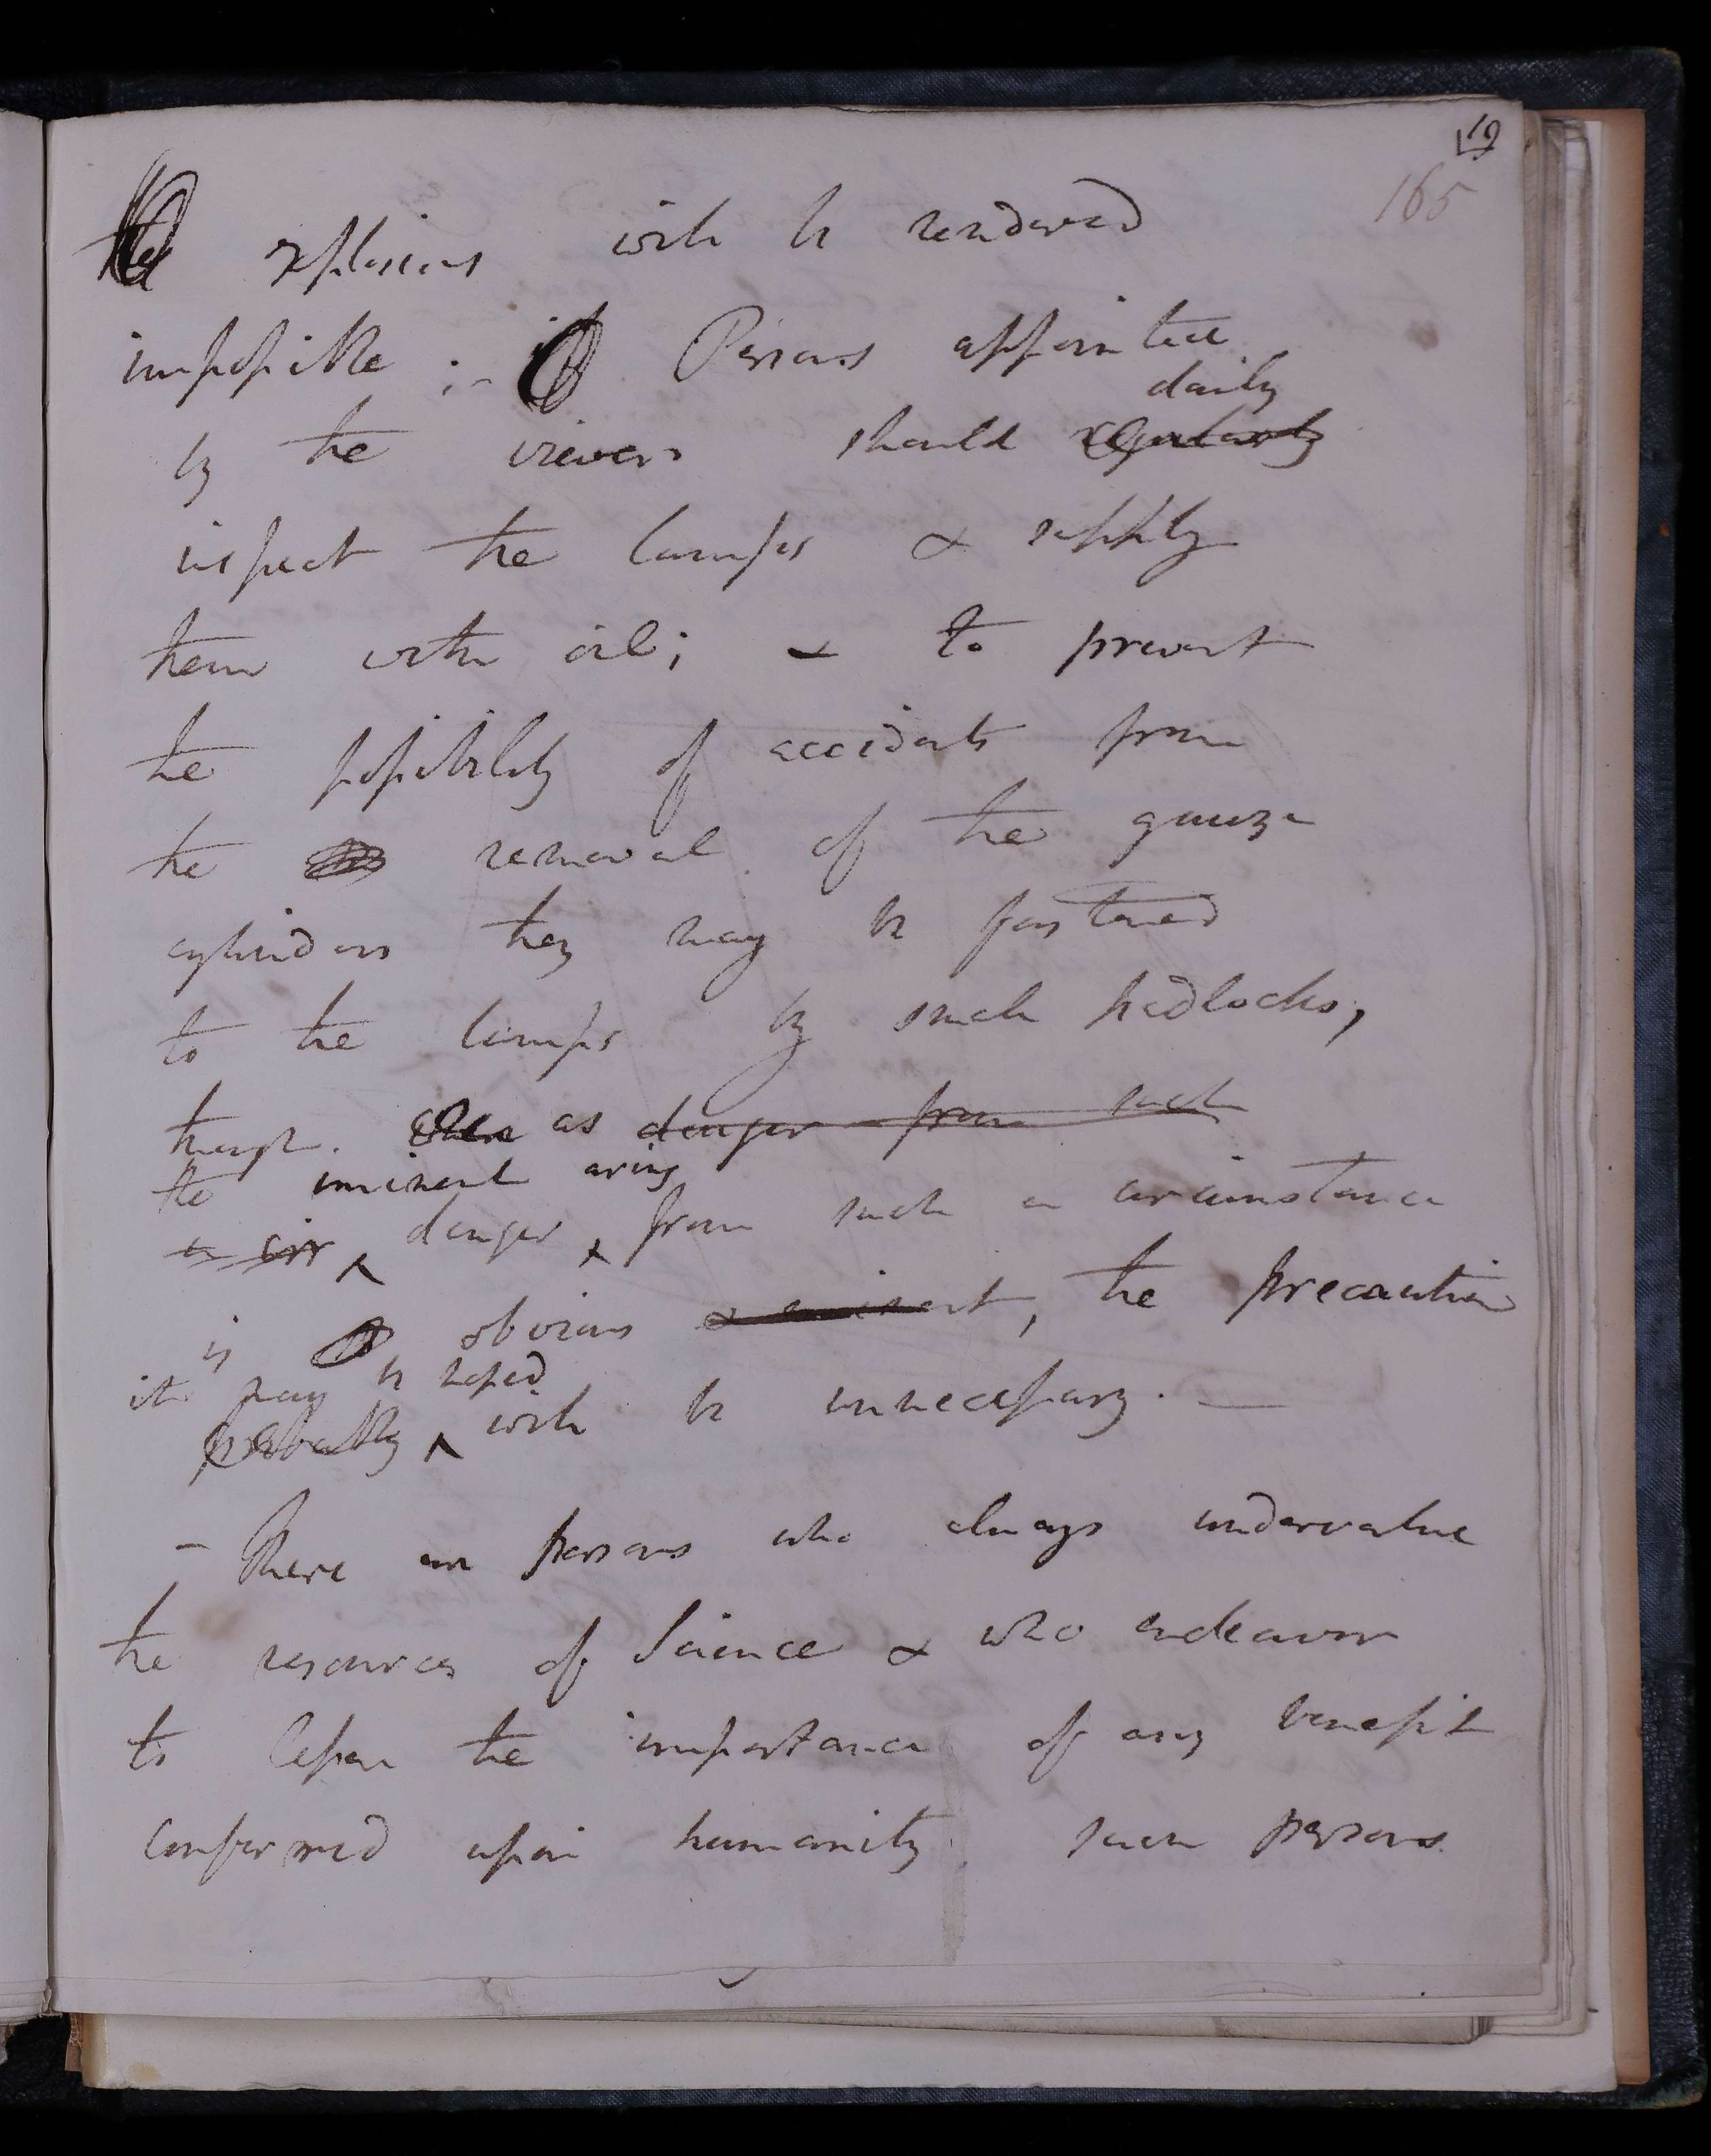 19
165
explosions will be rendered
impossible ;- Persons appointed
daily
by the viewers should regularly
inspect the lamps & supply
them with oil; & to prevent
the possibility of accidents from
the removal of the gauze
cylinders they may be fastened
to the lamps by small padlocks,
though. as danger from such
the iminent arisg
a cir ^ danger ^ from such a circumstance
is obvious & eminent, the precaution
it may be hoped
probably ^ will be unnecessary. —
- There are persons who always undervalue
the resources of Science & who endeavor
to lessen the importance of any benefit
conferred upon humanity. such persons